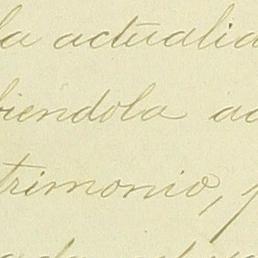 la actualid
biendola ad
trimonio, p